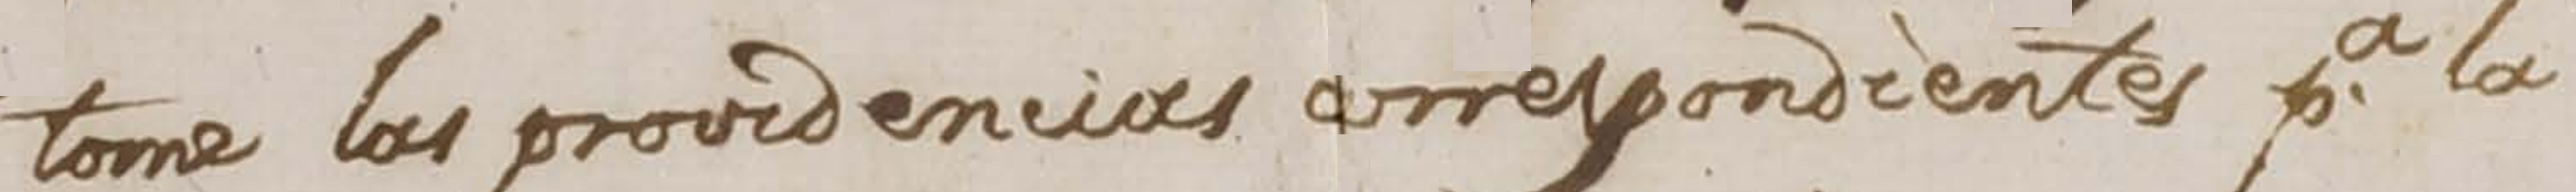 tome las providencias correspondientes p.ª la